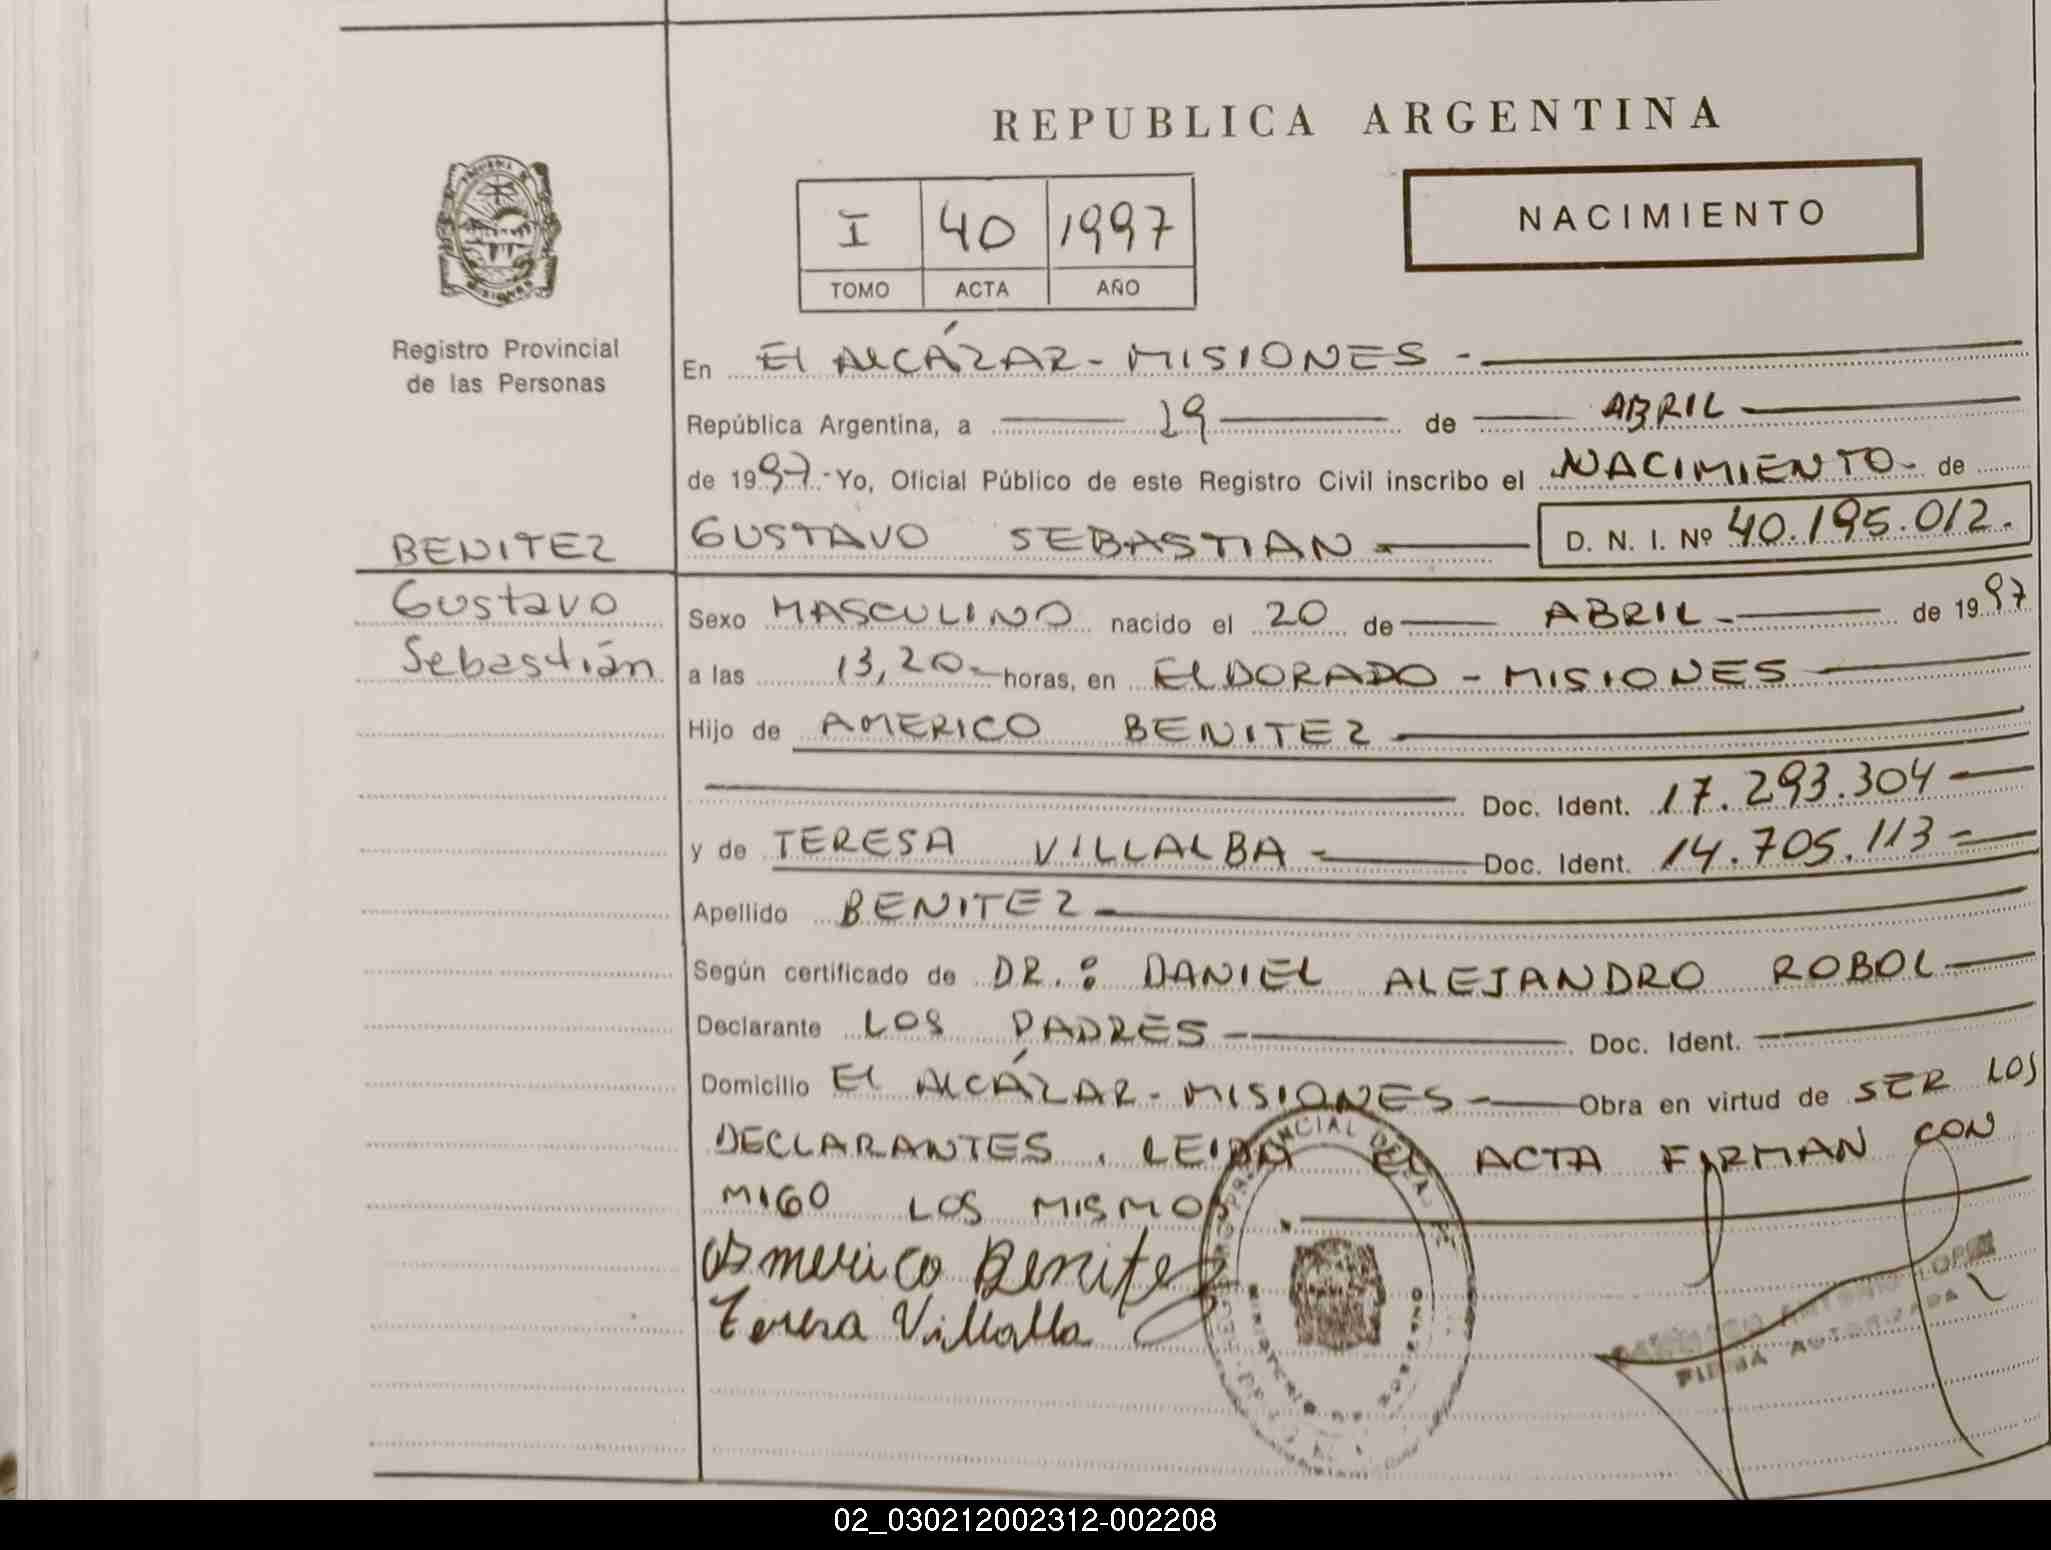 REPUBLICA ARGENTINA
NACIMIENTO
I 40 1997
TOMO ACTA AÑO
Registro Provincial
de las Personas
En El ALCÁZAR - MISIONES -
República Argentina, a 29 de ABRIL
de 1997 - Yo, Oficial Público de este Registro Civil inscribo el NACIMIENTO - de
BENITEZ
Gustavo
Sebastián
GUSTAVO SEBASTIAN - D. N. I. Nº 40.195.012.
Sexo MASCULINO nacido el 20 de ABRIL - de 1997
a las 13,20 - horas, en ELDORADO - MISIONES
Hijo de AMERICO BENITEZ
Doc. Ident. 17.293.304
y de TERESA VILLALBA - Doc. Ident. 14.705.113 -
Apellido BENITEZ
Según certificado de DR.: DANIEL ALEJANDRO ROBOL
Declarante LOS PADRES - Doc. Ident.
Domicilio El ALCÁZAR - MISIONES - Obra en virtud de SER LOS
DECLARANTES. LEIDA EL ACTA FIRMAN CON
MIGO LOS MISMOS
Americo Benitez
Teresa Villalba
ANTONIO LOPEZ
FIRMA AUTORIZADA
02_030212002312-002208